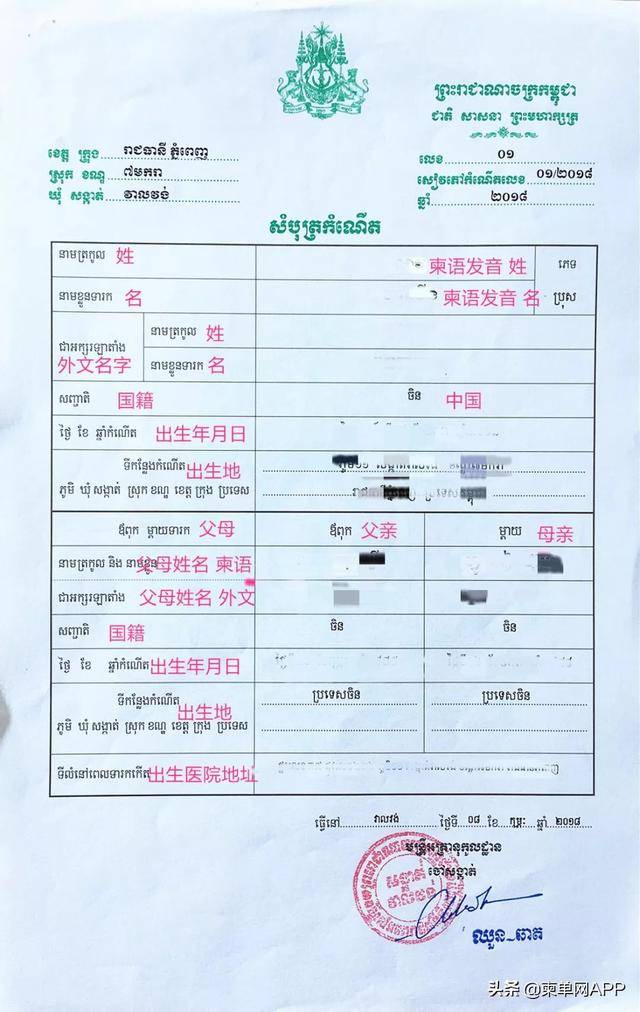 ព្រះរាជាណាចក្រកម្ពុជា
ជាតិ សាសនា ព្រះមហាក្សត្រ
ខេត្ត ក្រុង រាជធានី ភ្នំពេញ
ស្រុក ខណ្ឌ ៧មករា
ឃុំ សង្កាត់ វាលវង់
លេខ 01
សៀវភៅកំណើតលេខ 01/២០១៨
ឆ្នាំ ២០១៨
សំបុត្រកំណើត
នាមត្រកូល 姓 柬语发音 姓 ភេទ
នាមខ្លួនទារក 名 柬语发音 名 ប្រុស
ជាអក្សរឡាតាំង 外文名字
នាមត្រកូល 姓
នាមខ្លួនទារក 名
សញ្ជាតិ 国籍 ចិន 中国
ថ្ងៃ ខែ ឆ្នាំកំណើត 出生年月日
ទីកន្លែងកំណើត 出生地
ភូមិ ឃុំ សង្កាត់ ស្រុក ខណ្ឌ ខេត្ត ក្រុង ប្រទេស
ឪពុក ម្តាយទារក 父母 ឪពុក 父亲 ម្តាយ 母亲
នាមត្រកូល និង នាមខ្លួន 父母姓名 柬语
ជាអក្សរឡាតាំង 父母姓名 外文
សញ្ជាតិ 国籍 ចិន ចិន
ថ្ងៃ ខែ ឆ្នាំកំណើត 出生年月日
ទីកន្លែងកំណើត 出生地 ប្រទេសចិន ប្រទេសចិន
ភូមិ ឃុំ សង្កាត់ ស្រុក ខណ្ឌ ខេត្ត ក្រុង ប្រទេស
ទីលំនៅពេលទារកកើត 出生医院地址
ធ្វើនៅ វាលវង់ ថ្ងៃទី 08 ខែ កុម្ភៈ ឆ្នាំ ២០១៨
មន្ត្រីអត្រានុកូលដ្ឋាន
ចៅសង្កាត់
សង្កាត់
វាលវង់
ឈួន ឆាត
头条 @柬单网APP